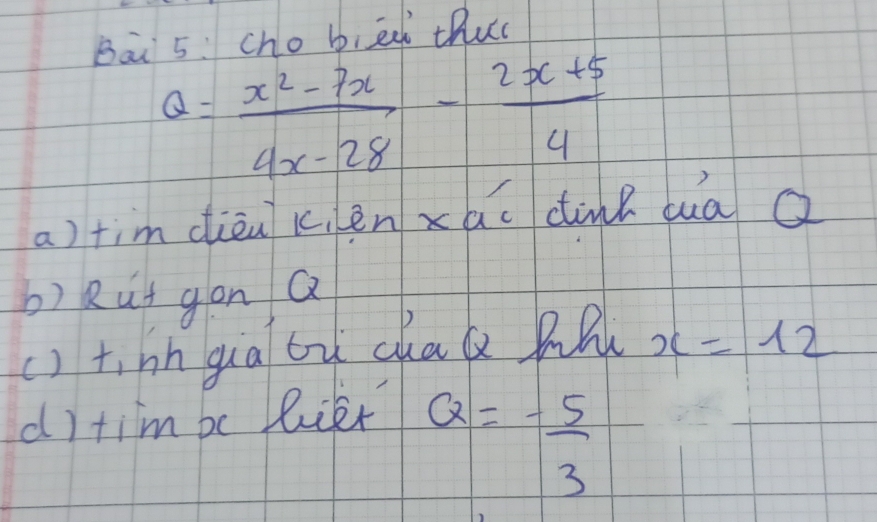 Bài 5: Cho biểu thức
Q = x² - 7x / 4x - 28 - 2x + 5 / 4
a) tìm điều kiện xác định của Q
b) Rút gọn Q
c) tính giá trị của Q khi x = 12
d) tìm x biết Q = - 5/3